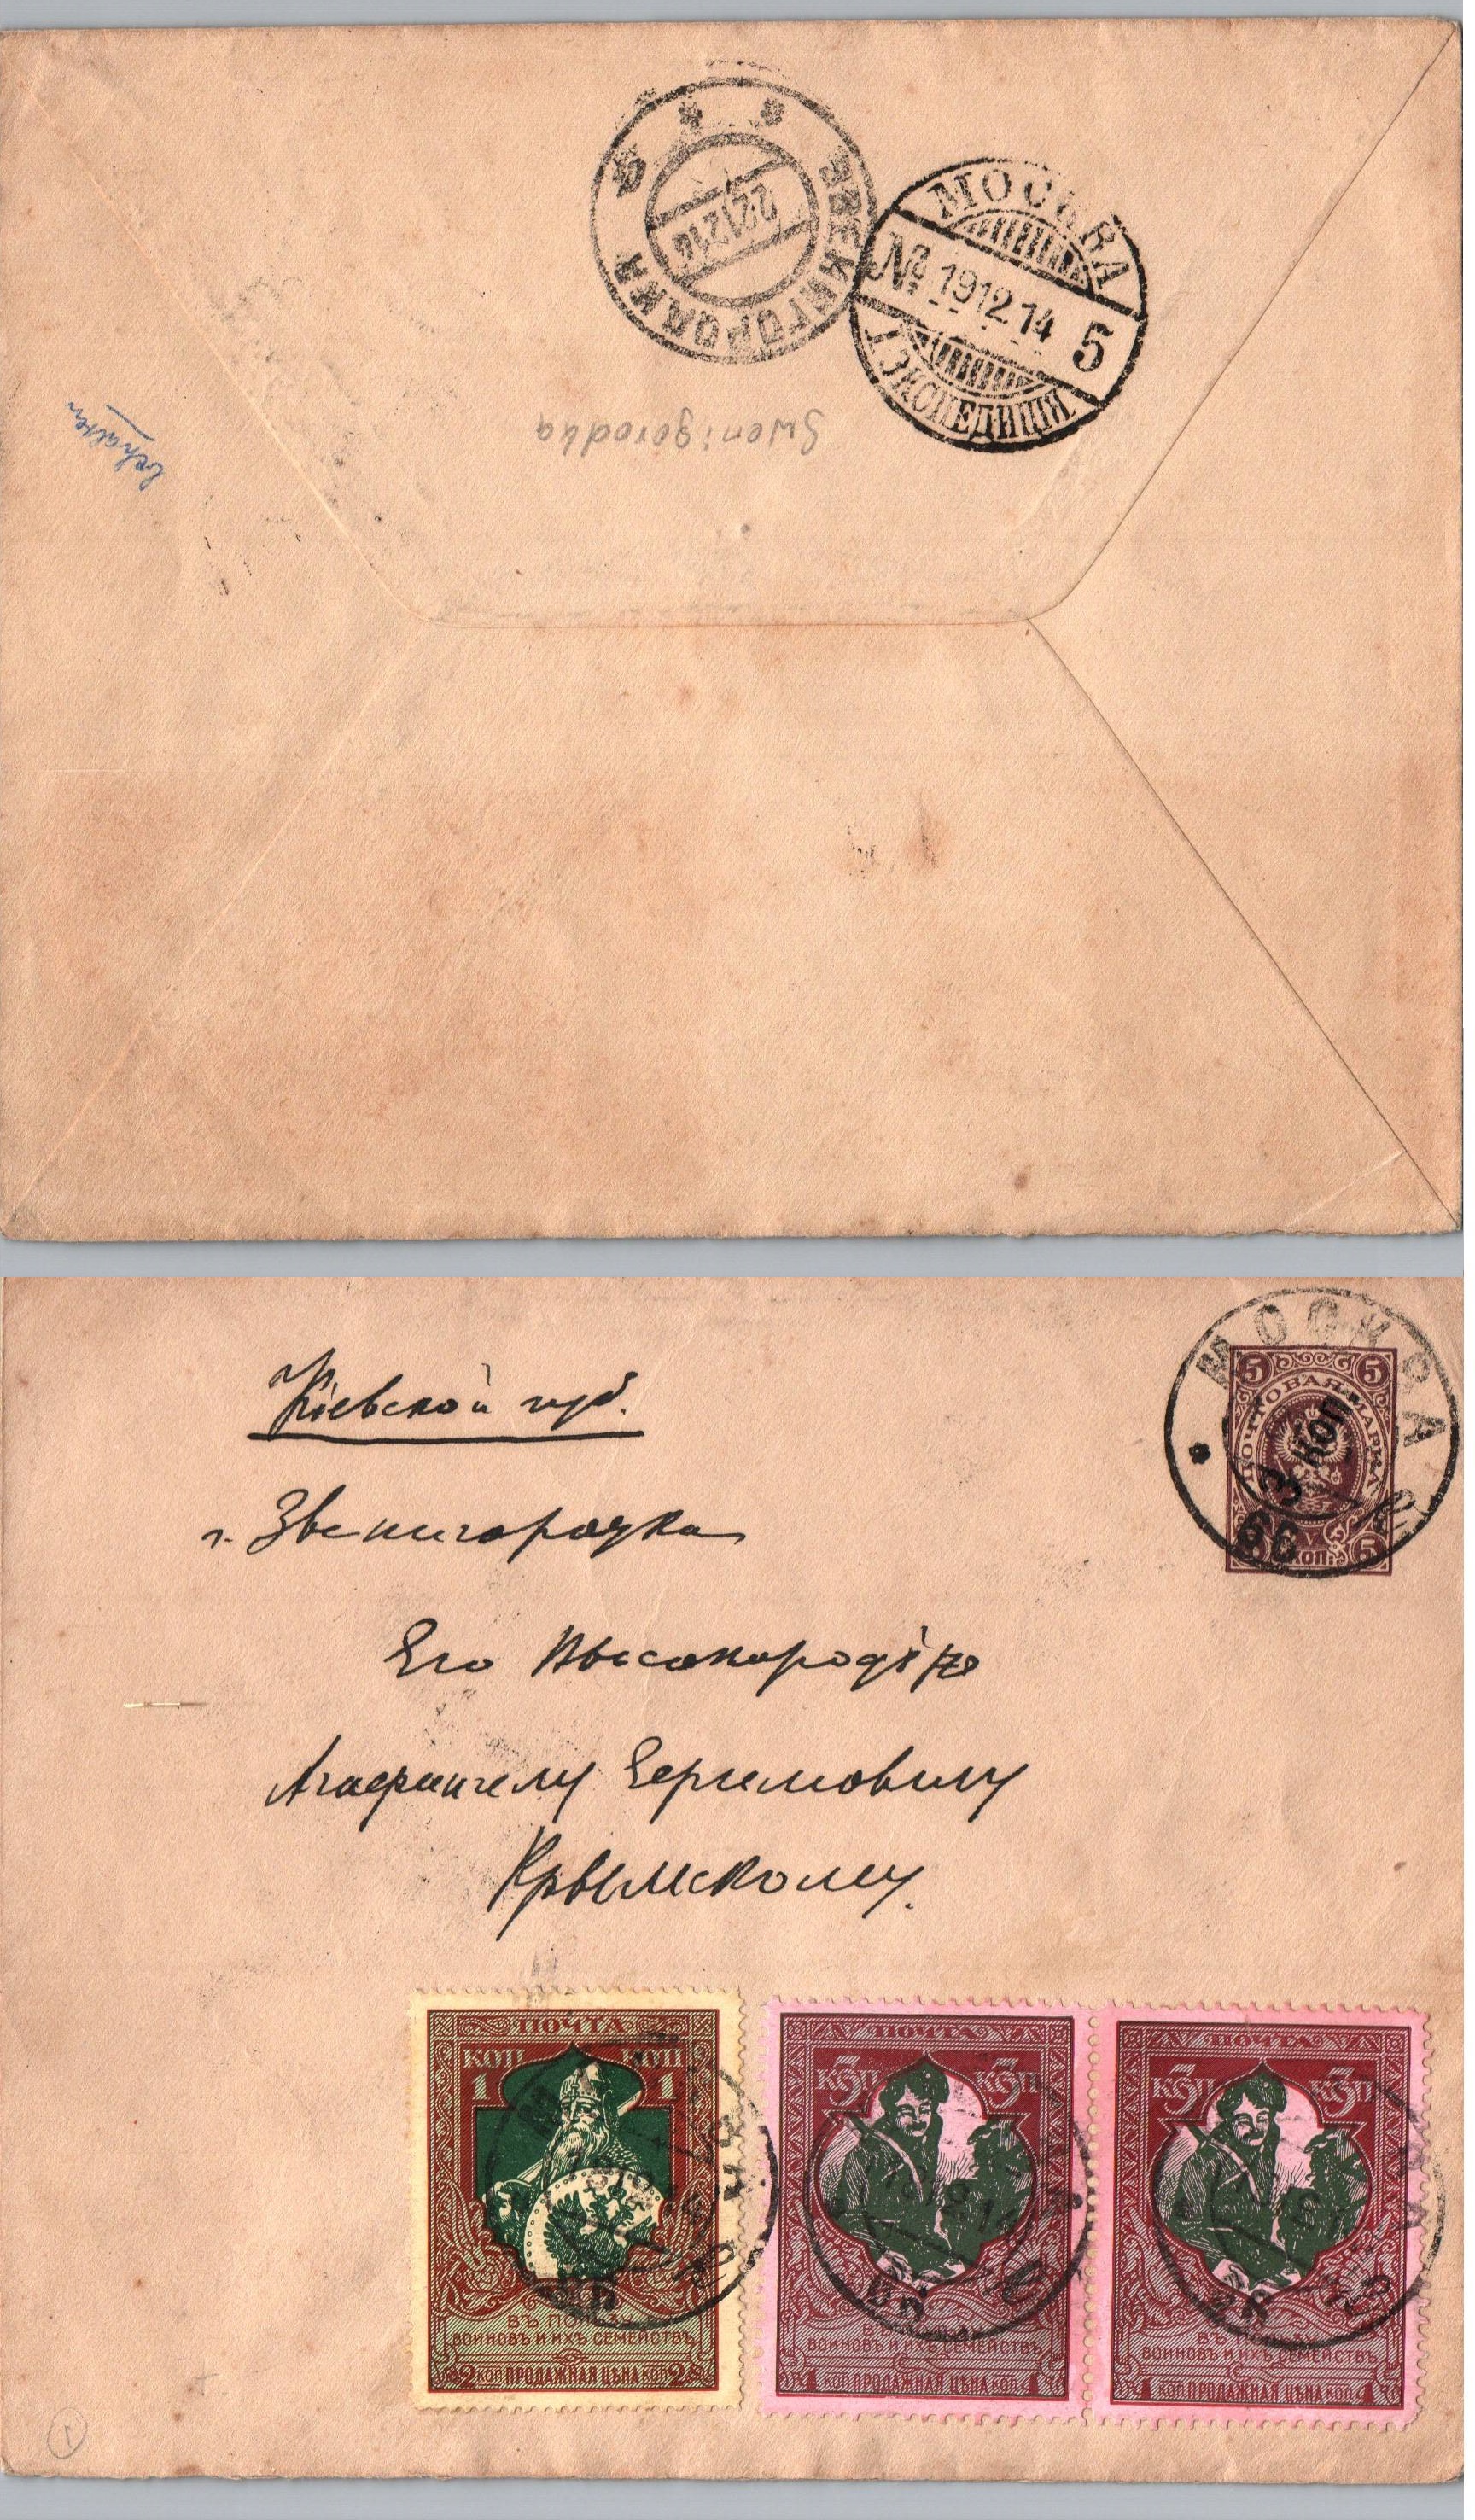 ЗВЕНИГОРОДКА
22 12 14
МОСКВА
№ 19 12 14 5
1 ЭКСПЕДИЦІЯ
Swenigorodka
Кіевской губ.
г. Звенигородка
Его Высокородію
Агафангелу Ефимовичу
Крымскому.
МОСКВА
5 5
ПОЧТОВАЯ МАРКА
3 коп
КОП. 5
ПОЧТА
КОП КОП
1 1
ВЪ ПОЛЬЗУ
ВОИНОВЪ И ИХЪ СЕМЕЙСТВЪ
2 КОП ПРОДАЖНАЯ ЦѢНА КОП 2
ПОЧТА
3 КОП 3 КОП
ВЪ ПОЛЬЗУ
ВОИНОВЪ И ИХЪ СЕМЕЙСТВЪ
4 КОП ПРОДАЖНАЯ ЦѢНА КОП 4
ПОЧТА
3 КОП 3 КОП
ВЪ ПОЛЬЗУ
ВОИНОВЪ И ИХЪ СЕМЕЙСТВЪ
4 КОП ПРОДАЖНАЯ ЦѢНА КОП 4
1